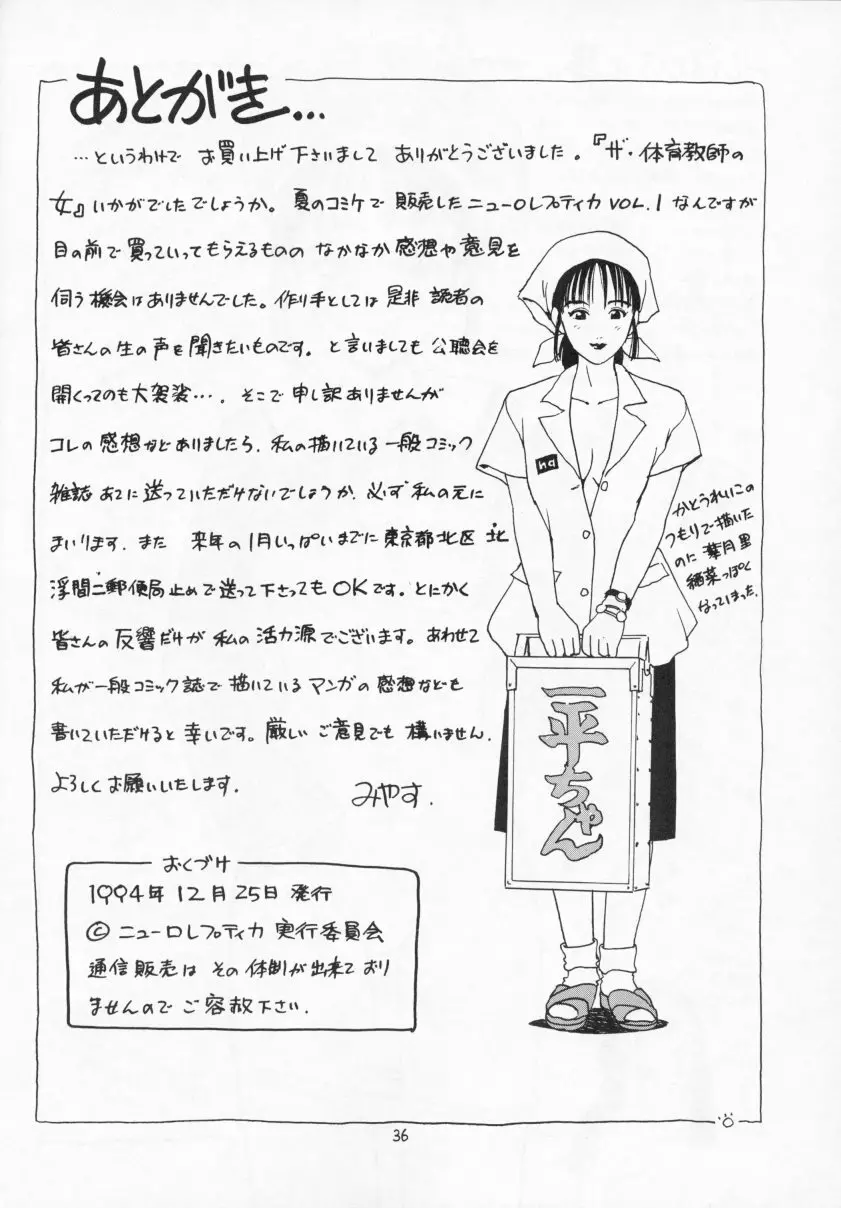 あとがき…
…というわけで お買い上げ下さいまして ありがとうございました。『ザ・体育教師の
女』いかがでしたでしょうか。夏のコミケで 販売したニューロレプティカ VOL.1 なんですが
目の前で買っていってもらえるものの なかなか感想や意見を
伺う機会はありませんでした。作り手としては 是非 読者の
皆さんの生の声を聞きたいものです。と言いましても 公聴会を
開くってのも大袈裟…。そこで 申し訳ありませんが
コレの感想などありましたら、私の描いている一般コミック
雑誌あてに送っていただけないでしょうか。必ず私の元に
まいります。また 来年の1月いっぱいまでに東京都北区 北
浮間二郵便局止めで送って下さってもOKです。とにかく
皆さんの反響だけが 私の活力源でございます。あわせて
私が一般コミック誌で描いているマンガの感想なども
書いていただけると幸いです。厳しいご意見でも 構いません。
よろしくお願いいたします。
みやす。
かとうれいこの
つもりで描いた
のに 葉月里
緒菜っぽく
なってしまった。
na
一平ちゃん
おくづけ
1994年12月25日発行
© ニューロレプティカ 実行委員会
通信販売は その体制が出来ており
ませんので ご容赦下さい。
36